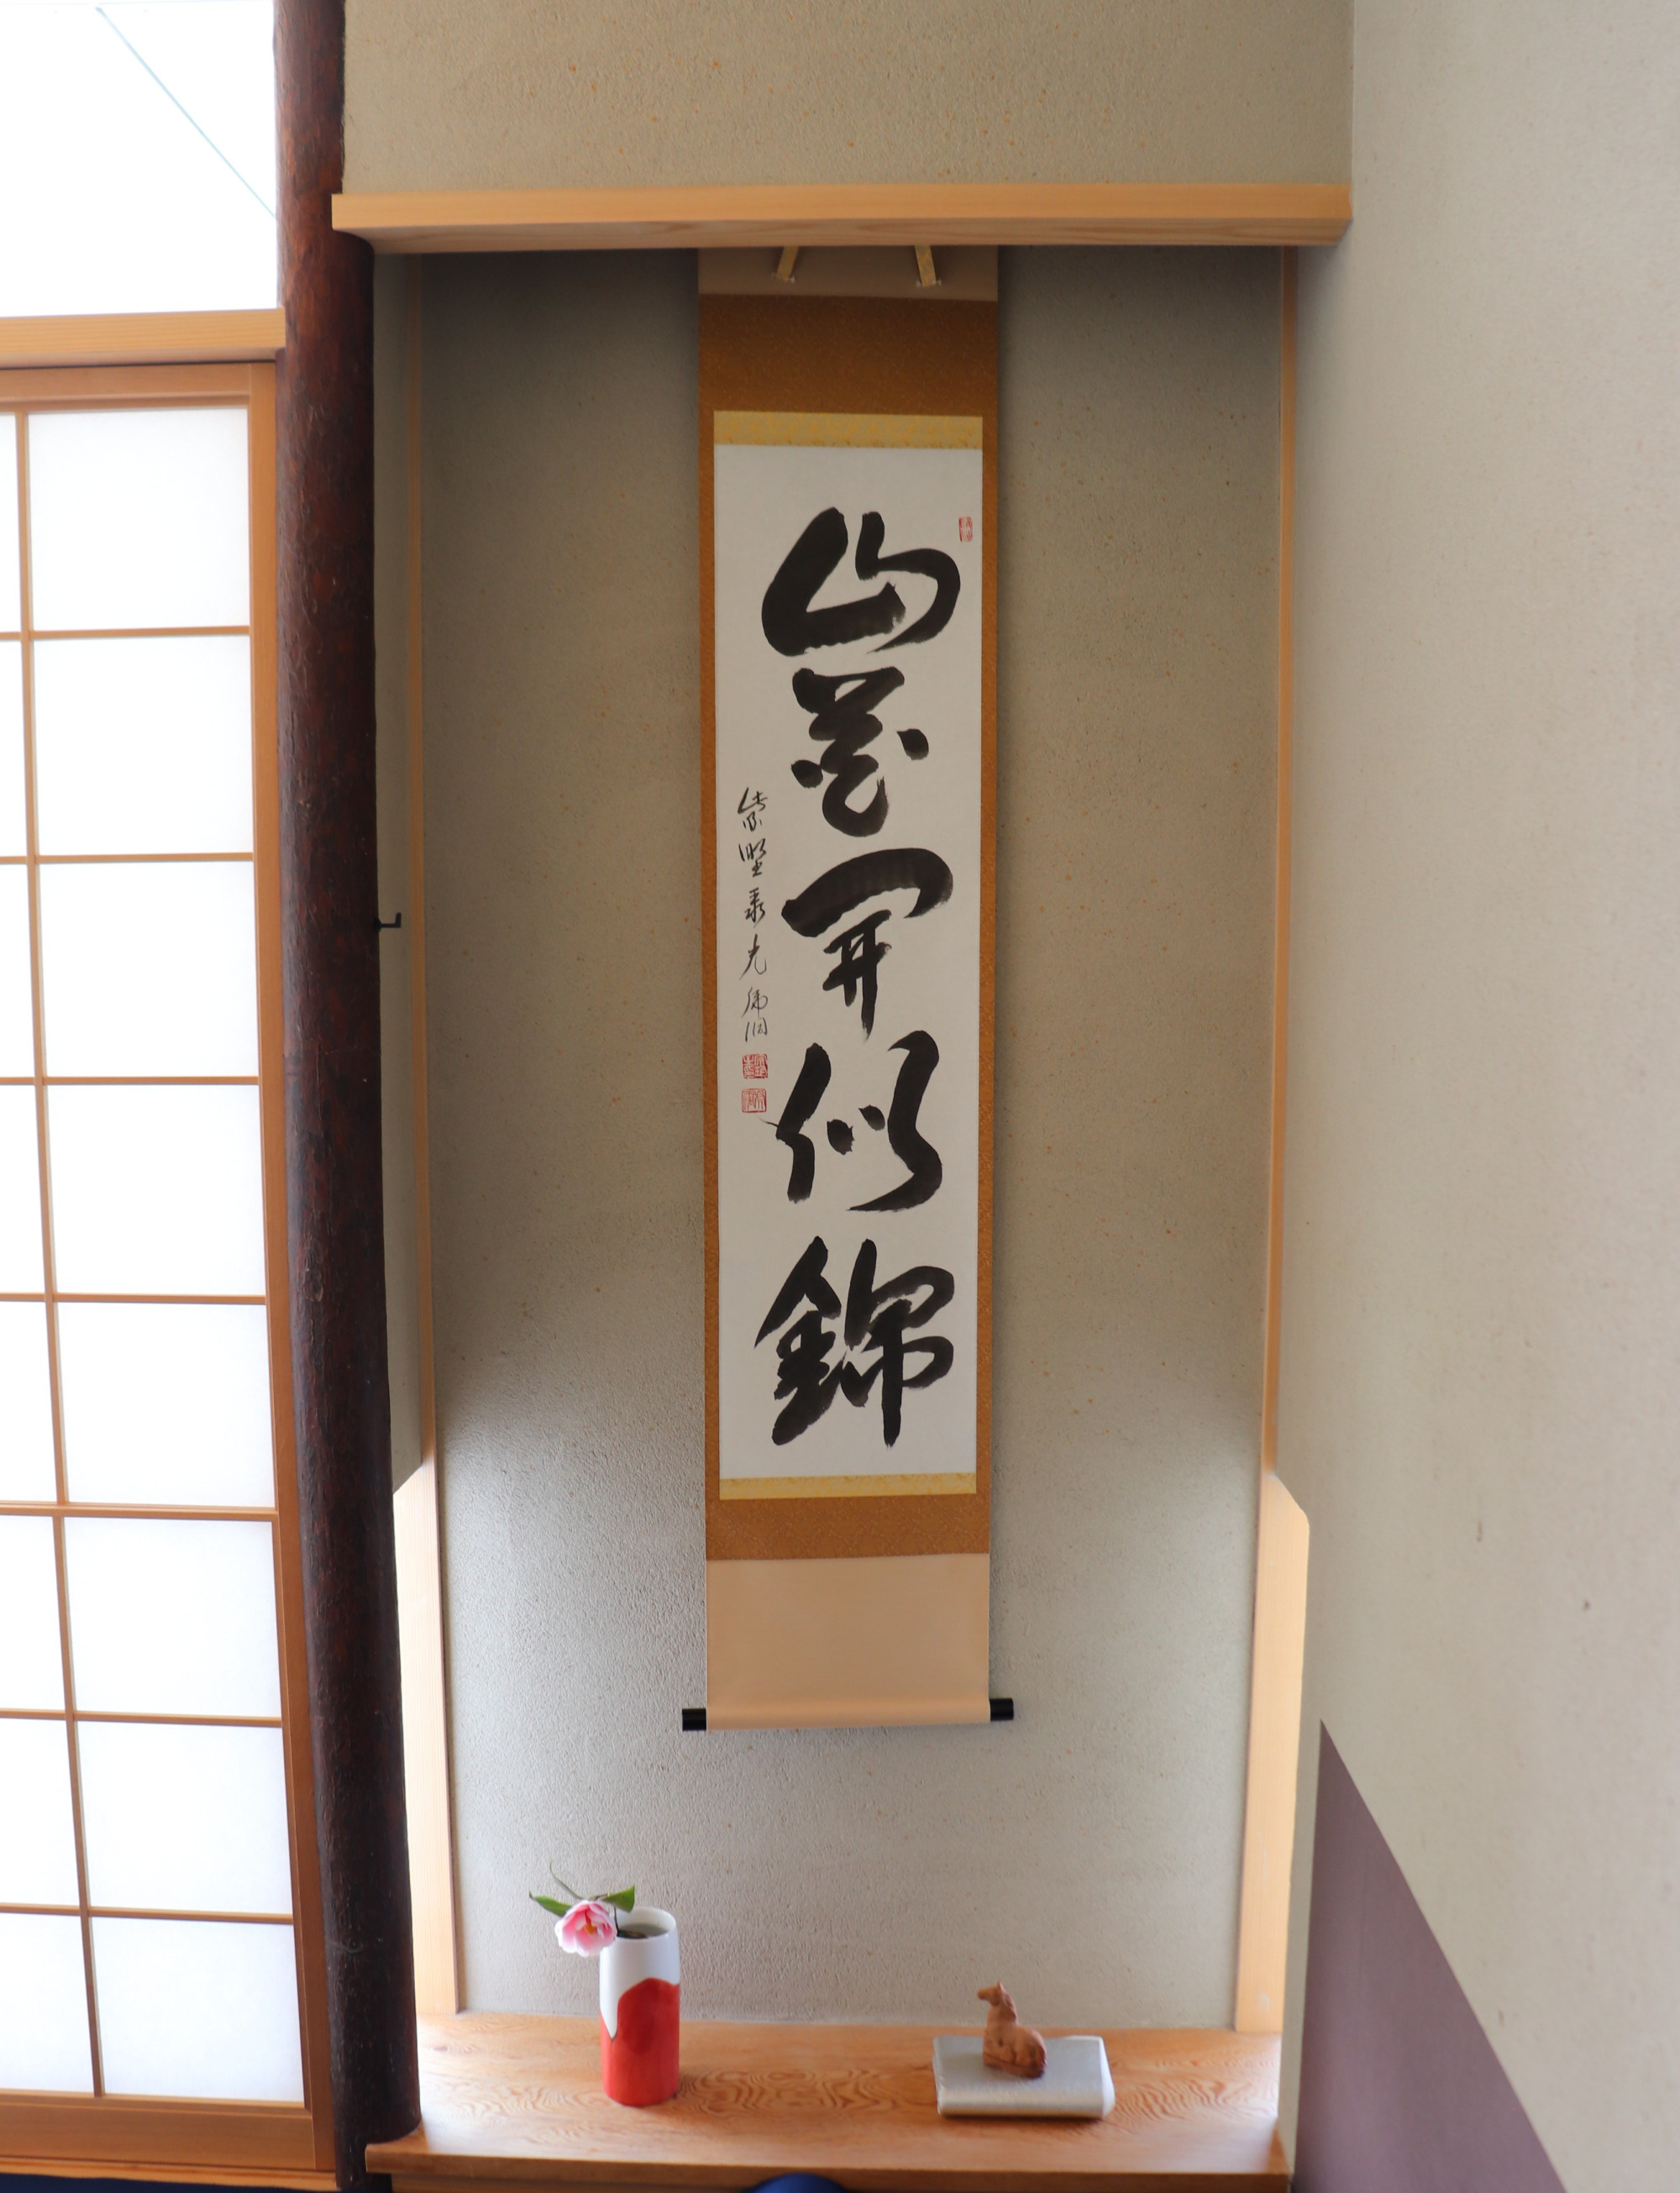 山花開似錦
紫野泰光